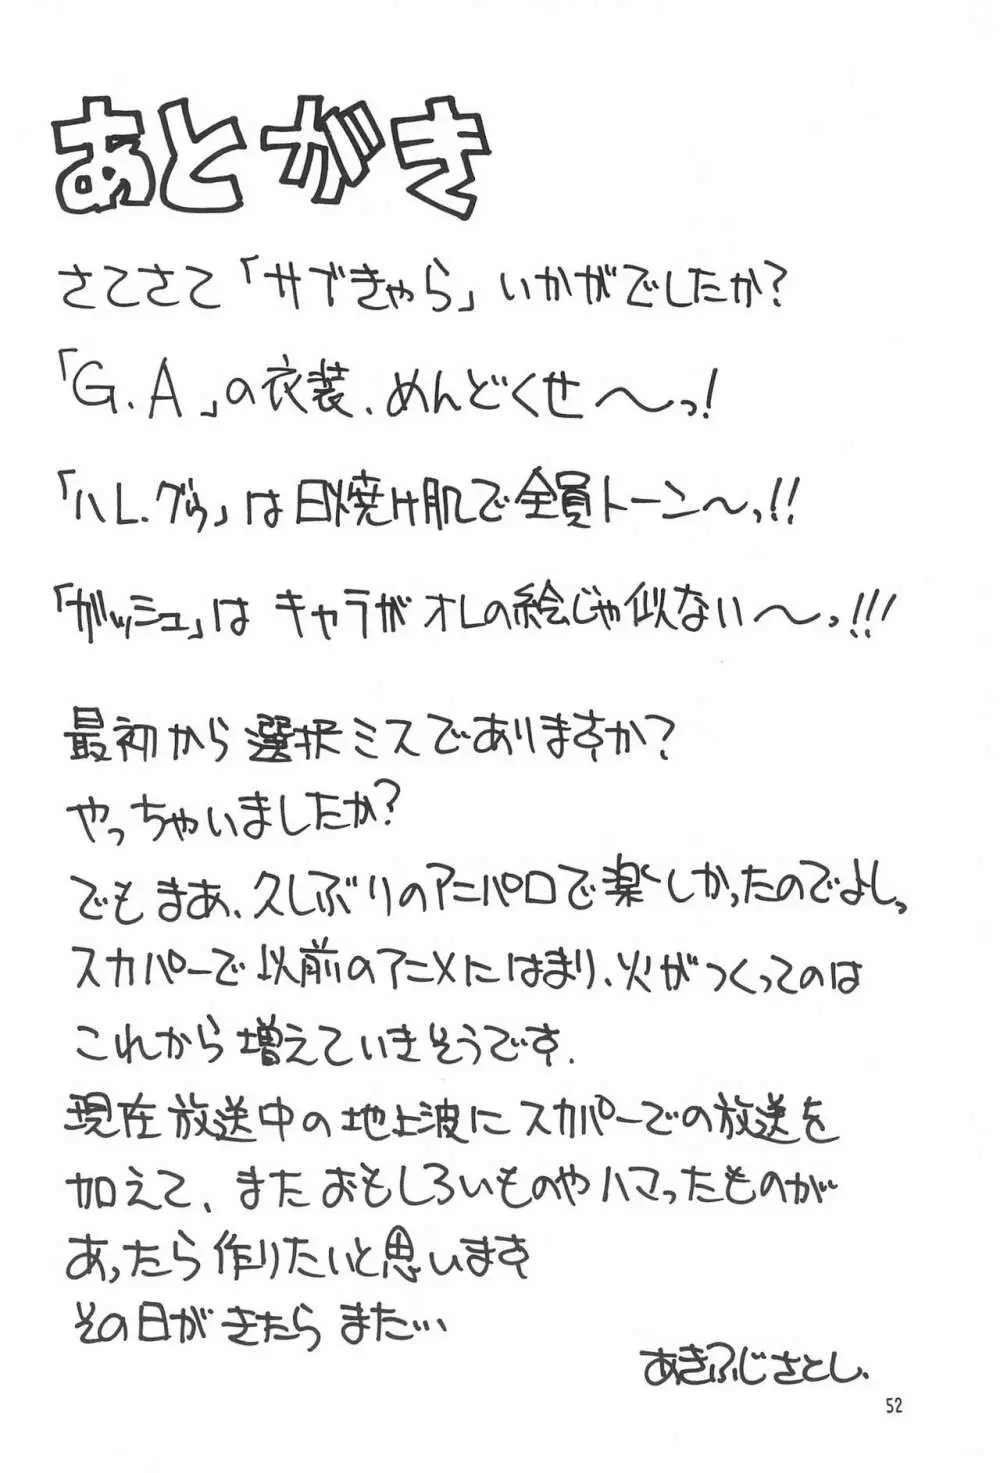 あとがき
さてさて「サブきゃら」いかがでしたか?
「G.A」の衣装、めんどくせ〜っ!
「ハレ.グゥ」は日焼け肌で全員トーン〜っ!!
「ガッシュ」は キャラがオレの絵じゃ似ない〜っ!!!
最初から選択ミスでありますか?
やっちゃいましたか?
でもまあ、久しぶりのアニパロで楽しかったのでよしっ
スカパーで以前のアニメにはまり、火がつくってのは
これから増えていきそうです.
現在放送中の地上波にスカパーでの放送を
加えて、またおもしろいものやハマったものが
あったら作りたいと思います
その日がきたら また…
あきふじさとし.
52